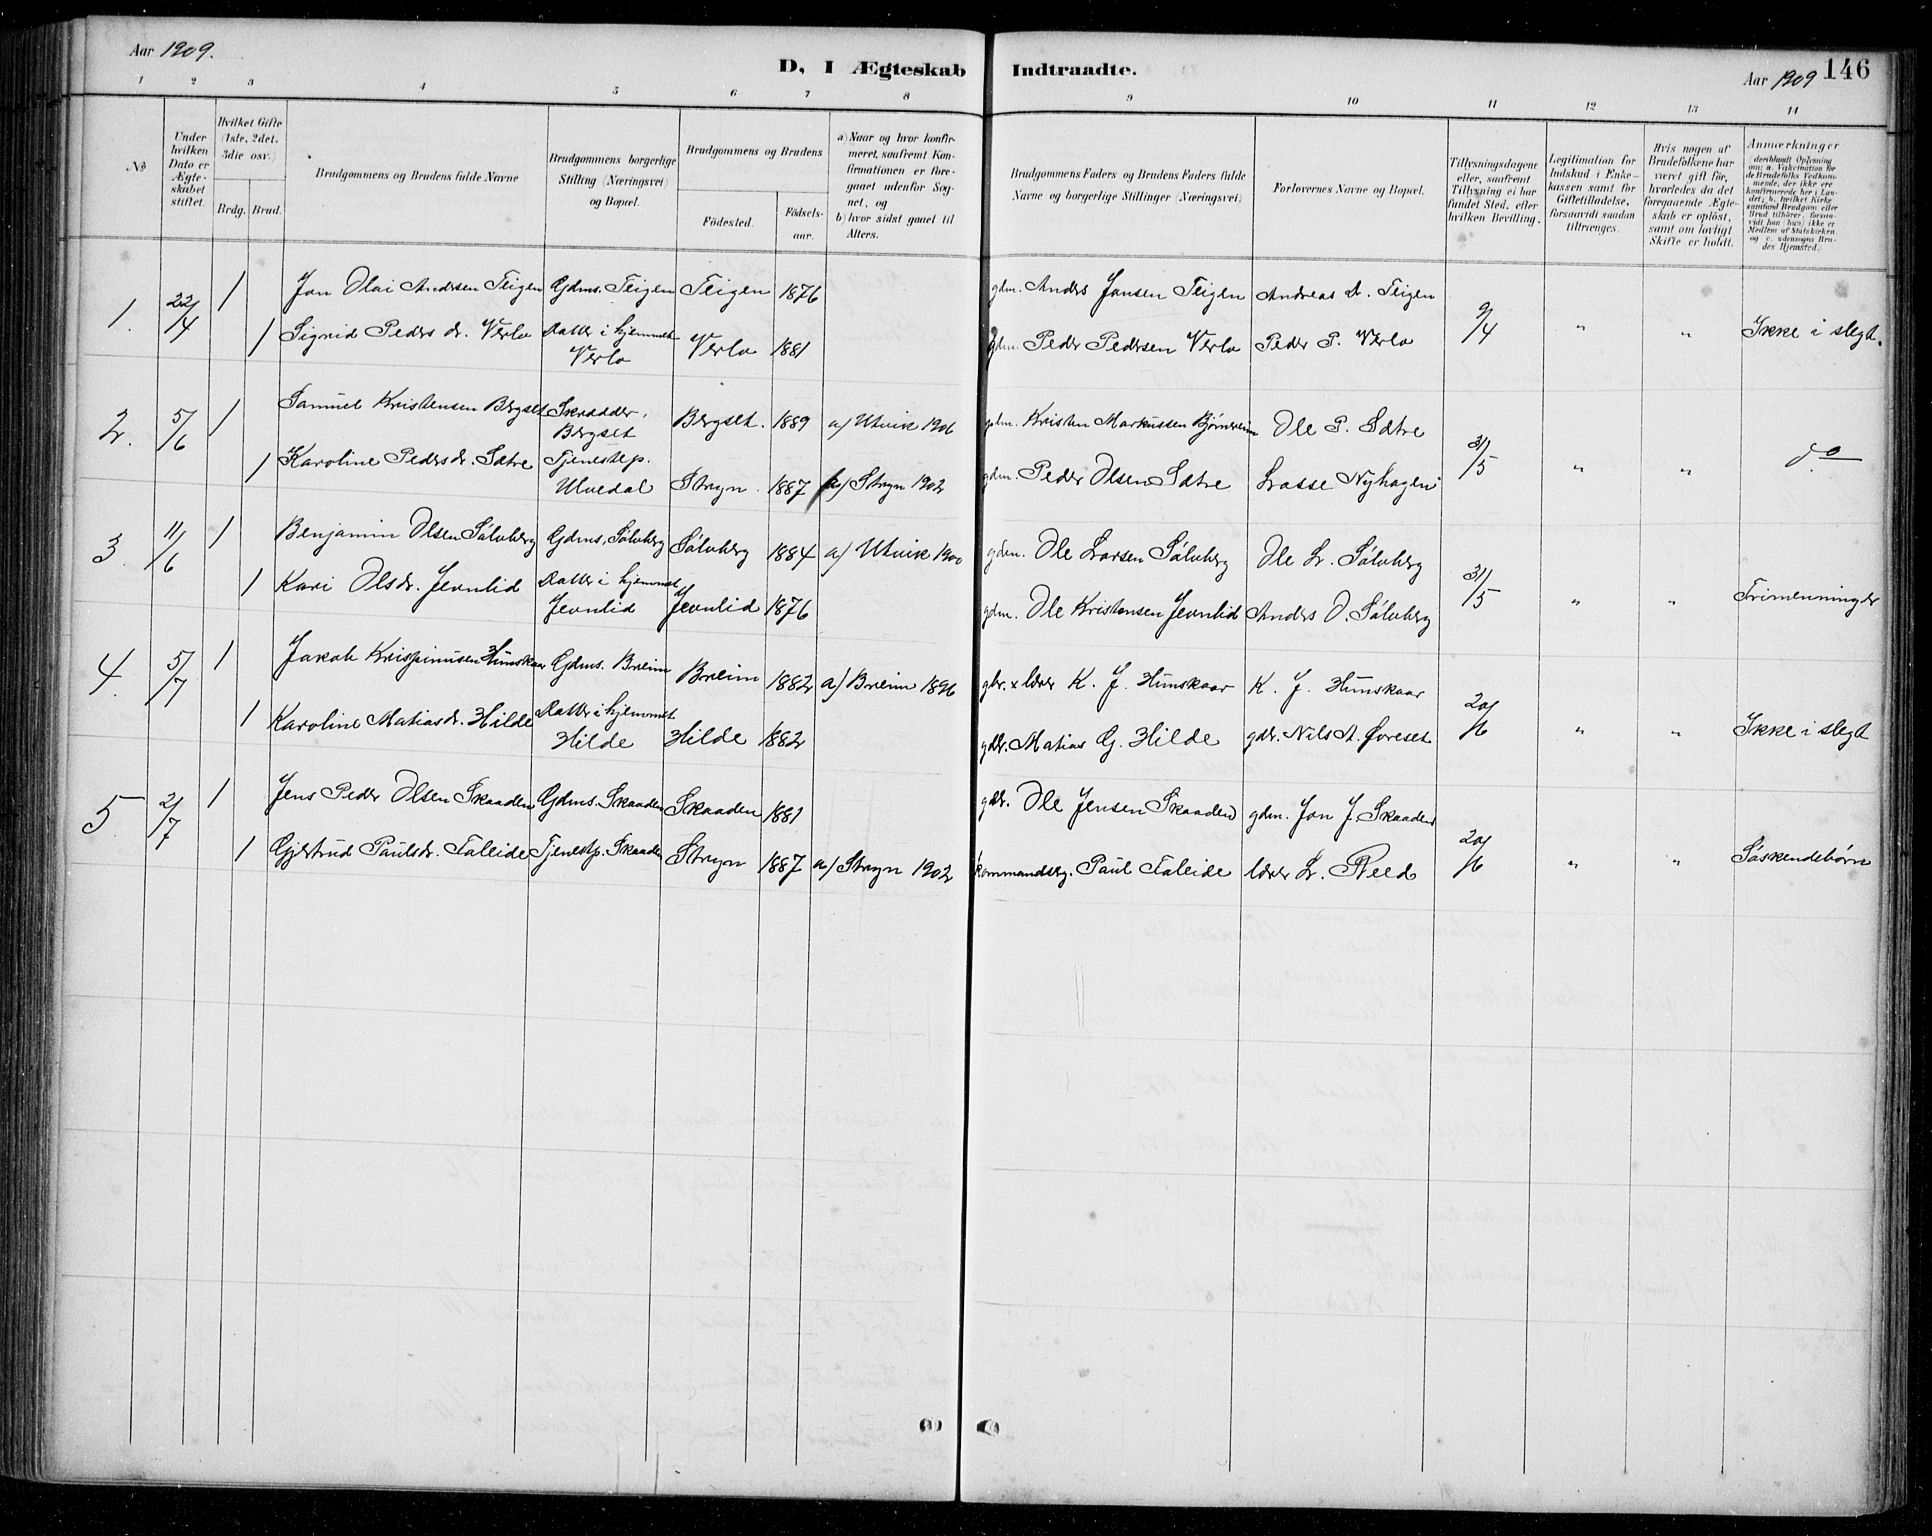 Aar 1909.
D, I Ægteskab Indtraadte.
Aar 1909
146
1 2 3 4 5 6 7 8 9 10 11 12 13 14
No
Under hvilken Dato er Ægteskabet stiftet.
Hvilket Gifte (1ste, 2det, 3die osv.)
Brdg. Brud.
Brudgommens og Brudens fulde Navne
Brudgommens borgerlige Stilling (Næringsvei) og Bopæl.
Brudgommens og Brudens
Födested. Födselsaar.
a) Naar og hvor konfirmeret, saafremt Konfirmationen er foregaaet udenfor Sognet, og
b) hvor sidst gaaet til Alters.
Brudgommens Faders og Brudens Faders fulde Navne og borgerlige Stillinger (Næringsvei)
Forlovernes Navne og Bopæl.
Tillysningsdagene eller, saafremt Tillysning ei har fundet Sted, efter hvilken Bevilling.
Legitimation for Indskud i Enkekassen samt for Giftetilladelse, forsaavidt saadan tiltrænges.
Hvis nogen af Brudefolkene har været gift för, hvorledes da det foregaaende Ægteskab er oplöst, samt om lovligt Skifte er holdt.
Anmærkninger (deriblandt Oplysning om: a. Vakcination for de Brudefolks Vedkommende, der ikke ere konfirmerede her i Landet; b. hvilket Kirkesamfund Brudgom eller Brud tilhörer, forsaavidt han (hun) ikke er Medlem af Statskirken, og c. udensogns Brudes Hjemsted.
1. 22/4 1 Jon Olai Andersen Teigen Gdms. Teigen Teigen 1876 gdm. Anders Jonsen Teigen Andreas A. Teigen 9/4 " " Ikke i slegt.
1 Sigrid Peders dr. Verlo Datter i hjemmet Verlo Verlo 1881 gdm. Peder Pedersen Verlo Peder P. Verlo
2. 5/6 1 Samuel Kristensen Bergset Skrædder, Bergset Bergset. 1889 a) Utvik 1906 gdm. Kristen Markussen Bjørnereim Ole P. Sætre 31/5 " " do
1 Karoline Pedersdr. Sætre Tjenestep. Ulvedal Stryn 1887 a) Stryn 1902 gdm. Peder Olsen Sætre Lasse Nyhagen
3. 11/6 1 Benjamin Olsen Sølvberg Gdms. Sølvberg Sølvberg 1884 a) Utvik 1900 gdm. Ole Larsen Sølvberg Ole L. Sølvberg 31/5 " " Trimenninger
1 Kari Olsdr. Jevnlid Datter i hjemmet Jevnlid Jevnlid 1876 gdm. Ole Kristensen Jevnlid Anders O. Sølvberg
4. 5/7 1 Jakob Krispinusen Humskaar Gdms. Breim Breim 1882 a) Breim 1896 gbr. x lærer K. J. Humskaar K. J. Humskaar 20/6 " " Ikke i slegt
1 Karoline Matiasdr. Hilde Datter i hjemmet Hilde Hilde 1882 gdr. Matias G. Hilde gdr. Nils A. Øvreset
5. 2/7 1 Jens Peder Olsen Skaaden Gdms. Skaaden Skaaden 1881 gdr. Ole Jensen Skaaden gdm. Jon J. Skaaden 20/6 " " Søskendebørn
1 Gjertrud Paulsdr. Faleide Tjenestp. Skaaden Stryn 1887 a) Stryn 1902 kommandserg. Paul Faleide lærer L. Reed